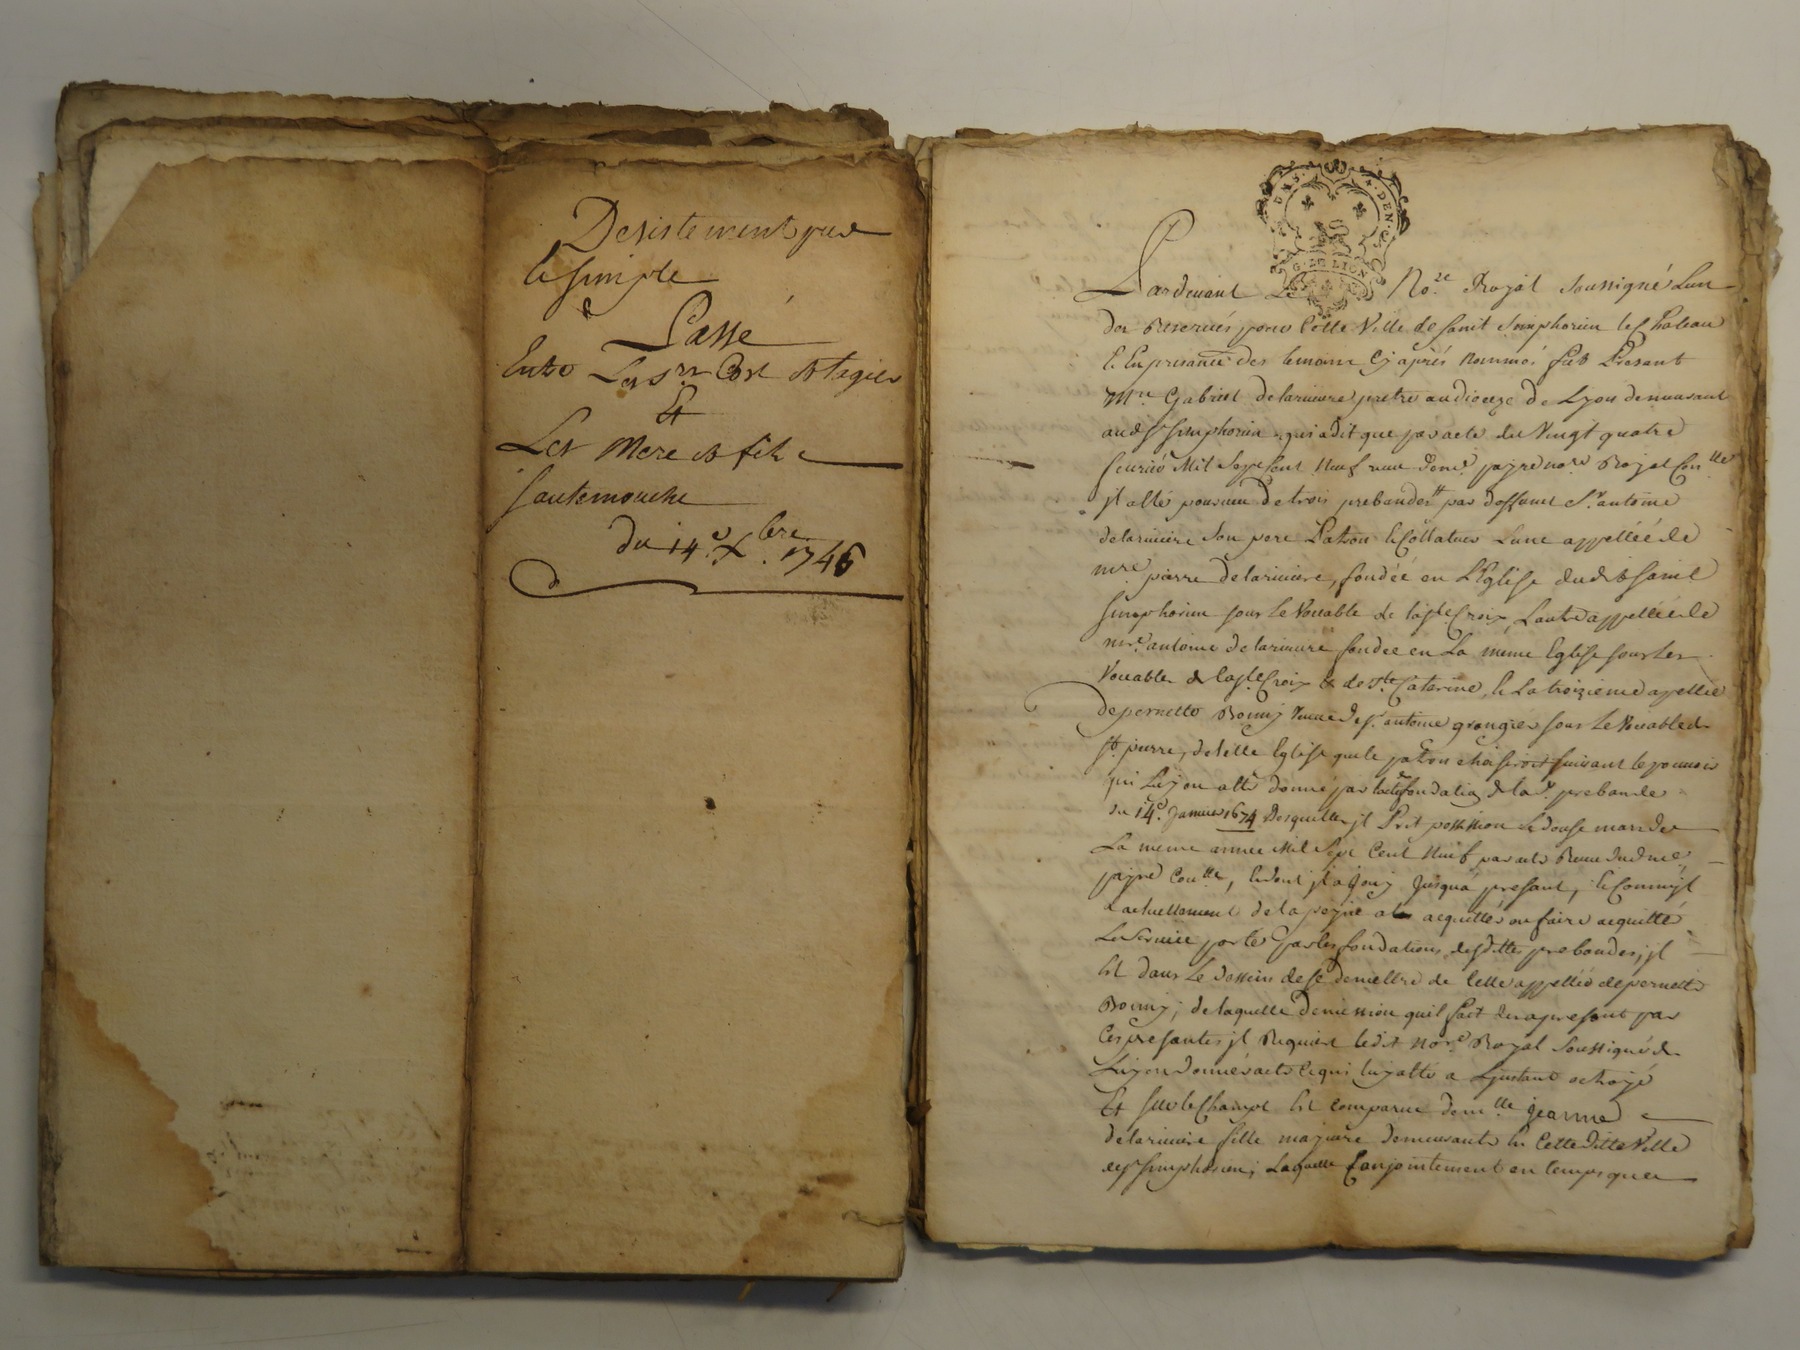 Desistement pur
& simple
Passé
Entre Les srs Cost & tagier
Et
Les Mere & fils
sautemouche
du 14e. Xbre. 1746
DEN. 4. DEN.
G. DE LION
Pardevant Le No.re Royal soussigné Lun
des Reservés pour Cette Ville de saint simphorien le Chateau
& En presance des temoins Cy après nommés fut Présant
Mre Gabriel delariviere pretre au dioceze de Lyon demeurant
aud st simphorien, qui a dit que par acte du Vingt quatre
fevrier Mil Sept Cent Neuf reçu de me. jayre no.re Royal
jl a etté pourveu de trois prebandes par deffunt Sr. antoine
delariviere Son pere Patron & Collateur Lune appellée de
mre. pierre delariviere, fondée en L'Eglise dud saint
simphorien sous le Vocable de la ste Croix, Lautre appellée de
mre. antoine delariviere fondée en La même Eglise sous Les
Vocables de la ste Croix & de ste. Caterine, & La troizieme appellée
de pernette Bonnij Veuve de sr. antoine grangier sous le Vocable de
st. pierre, de telle Eglise que le patron choisiroit suivant le pouvoir
qui Luy en a etté donné par lacte de fondation de lad. prebande
du 14e. Janvier 1674 Desquelles jl Prit possession Le douse mars de
La meme année Mil Sept Cent Neuf par acte Reçu dud me.
jayre, & dont jl a Jouy Jusqu'a presant, & Comme jl
a actuellement de la peyne a acquitter ou faire acquitter
Le Service porté par les fondations desdittes prebandes, jl
Est dans Le dessein de se demettre de Celle appellée de pernette
Bonnij; de laquelle demission qu'il fait des a presant par
Ces presantes jl Requiert ledit No.re Royal soussigné de
Luy en donner acte Ce qui luy a etté a Linstant octroyé
Et sur le Champt Est Comparue demlle jeanne
delariviere fille majeure demeurante En Cette ditte Ville
de st simphorien, Laquelle Conjointement en temps que